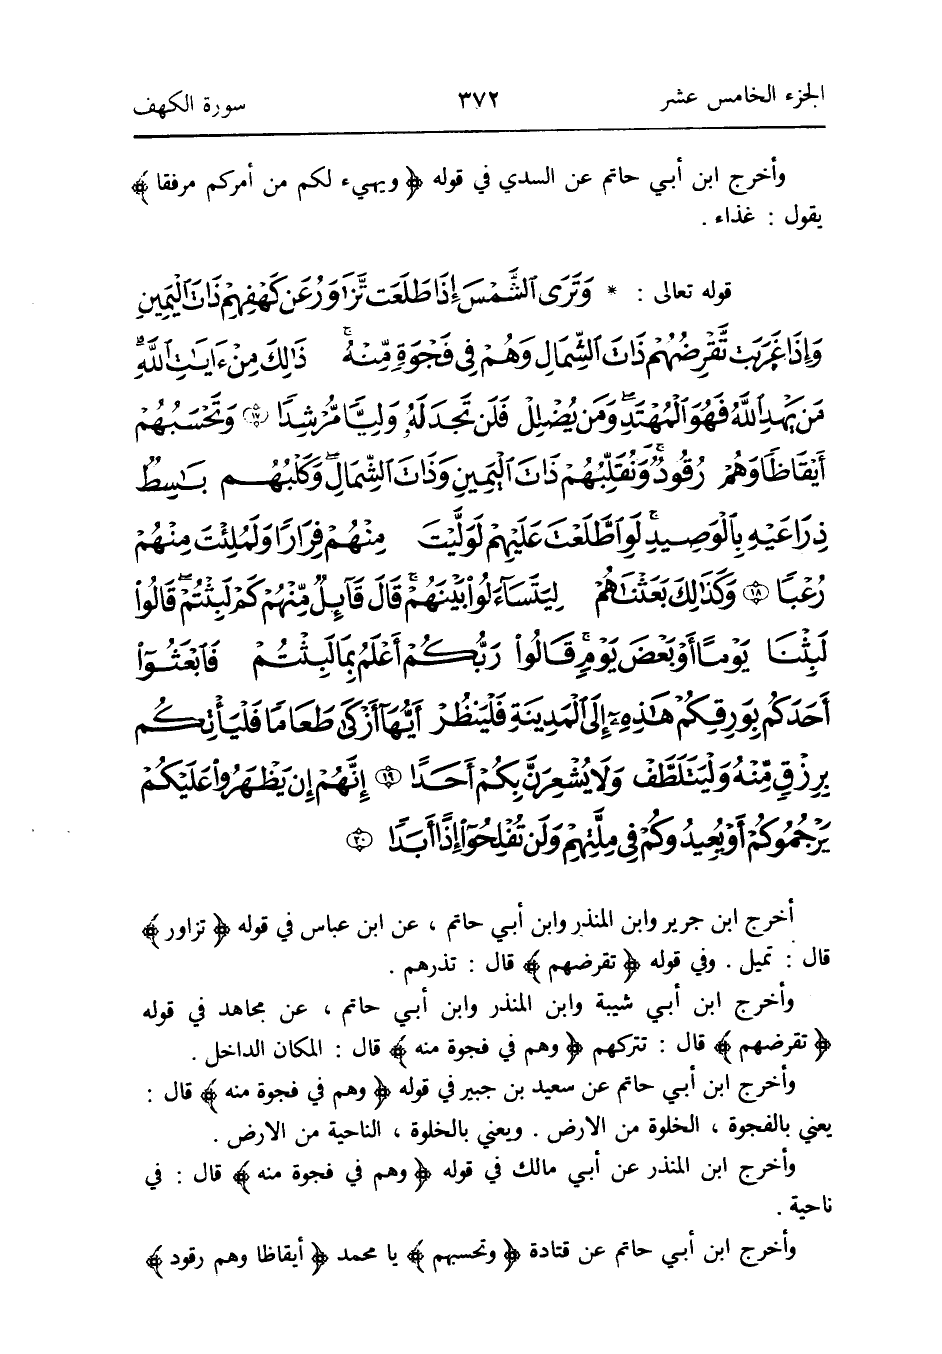 الجزء الخامس عشر ٣٧٢ سورة الكهف
وأخرج ابن أبي حاتم عن السدي في قوله ﴿ ويهيء لكم من أمركم مرفقا ﴾
يقول : غذاء .
قوله تعالى : * وَتَرَى ٱلشَّمْسَ إِذَا طَلَعَت تَّزَاوَرُ عَن كَهْفِهِمْ ذَاتَ ٱلْيَمِينِ
وَإِذَا غَرَبَت تَّقْرِضُهُمْ ذَاتَ ٱلشِّمَالِ وَهُمْ فِى فَجْوَةٍ مِّنْهُ ۚ ذَٰلِكَ مِنْ ءَايَٰتِ ٱللَّهِ ۗ
مَن يَهْدِ ٱللَّهُ فَهُوَ ٱلْمُهْتَدِ ۖ وَمَن يُضْلِلْ فَلَن تَجِدَ لَهُۥ وَلِيًّا مُّرْشِدًا ﴿١٧﴾ وَتَحْسَبُهُمْ
أَيْقَاظًا وَهُمْ رُقُودٌ ۚ وَنُقَلِّبُهُمْ ذَاتَ ٱلْيَمِينِ وَذَاتَ ٱلشِّمَالِ ۖ وَكَلْبُهُم بَٰسِطٌ
ذِرَاعَيْهِ بِٱلْوَصِيدِ ۚ لَوِ ٱطَّلَعْتَ عَلَيْهِمْ لَوَلَّيْتَ مِنْهُمْ فِرَارًا وَلَمُلِئْتَ مِنْهُمْ
رُعْبًا ﴿١٨﴾ وَكَذَٰلِكَ بَعَثْنَٰهُمْ لِيَتَسَآءَلُوا۟ بَيْنَهُمْ ۚ قَالَ قَآئِلٌ مِّنْهُمْ كَمْ لَبِثْتُمْ ۖ قَالُوا۟
لَبِثْنَا يَوْمًا أَوْ بَعْضَ يَوْمٍ ۚ قَالُوا۟ رَبُّكُمْ أَعْلَمُ بِمَا لَبِثْتُمْ فَٱبْعَثُوٓا۟
أَحَدَكُم بِوَرِقِكُمْ هَٰذِهِۦٓ إِلَى ٱلْمَدِينَةِ فَلْيَنظُرْ أَيُّهَآ أَزْكَىٰ طَعَامًا فَلْيَأْتِكُم
بِرِزْقٍ مِّنْهُ وَلْيَتَلَطَّفْ وَلَا يُشْعِرَنَّ بِكُمْ أَحَدًا ﴿١٩﴾ إِنَّهُمْ إِن يَظْهَرُوا۟ عَلَيْكُمْ
يَرْجُمُوكُمْ أَوْ يُعِيدُوكُمْ فِى مِلَّتِهِمْ وَلَن تُفْلِحُوٓا۟ إِذًا أَبَدًا ﴿٢٠﴾
أخرج ابن جرير وابن المنذر وابن أبي حاتم ، عن ابن عباس في قوله ﴿ تزاور ﴾
قال : تميل . وفي قوله ﴿ تقرضهم ﴾ قال : تذرهم .
وأخرج ابن أبي شيبة وابن المنذر وابن أبي حاتم ، عن مجاهد في قوله
﴿ تقرضهم ﴾ قال : تتركهم ﴿ وهم في فجوة منه ﴾ قال : المكان الداخل .
وأخرج ابن أبي حاتم عن سعيد بن جبير في قوله ﴿ وهم في فجوة منه ﴾ قال :
يعني بالفجوة ، الخلوة من الارض . ويعني بالخلوة ، الناحية من الارض .
وأخرج ابن المنذر عن أبي مالك في قوله ﴿ وهم في فجوة منه ﴾ قال : في
ناحية .
وأخرج ابن أبي حاتم عن قتادة ﴿ وتحسبهم ﴾ يا محمد ﴿ أيقاظا وهم رقود ﴾